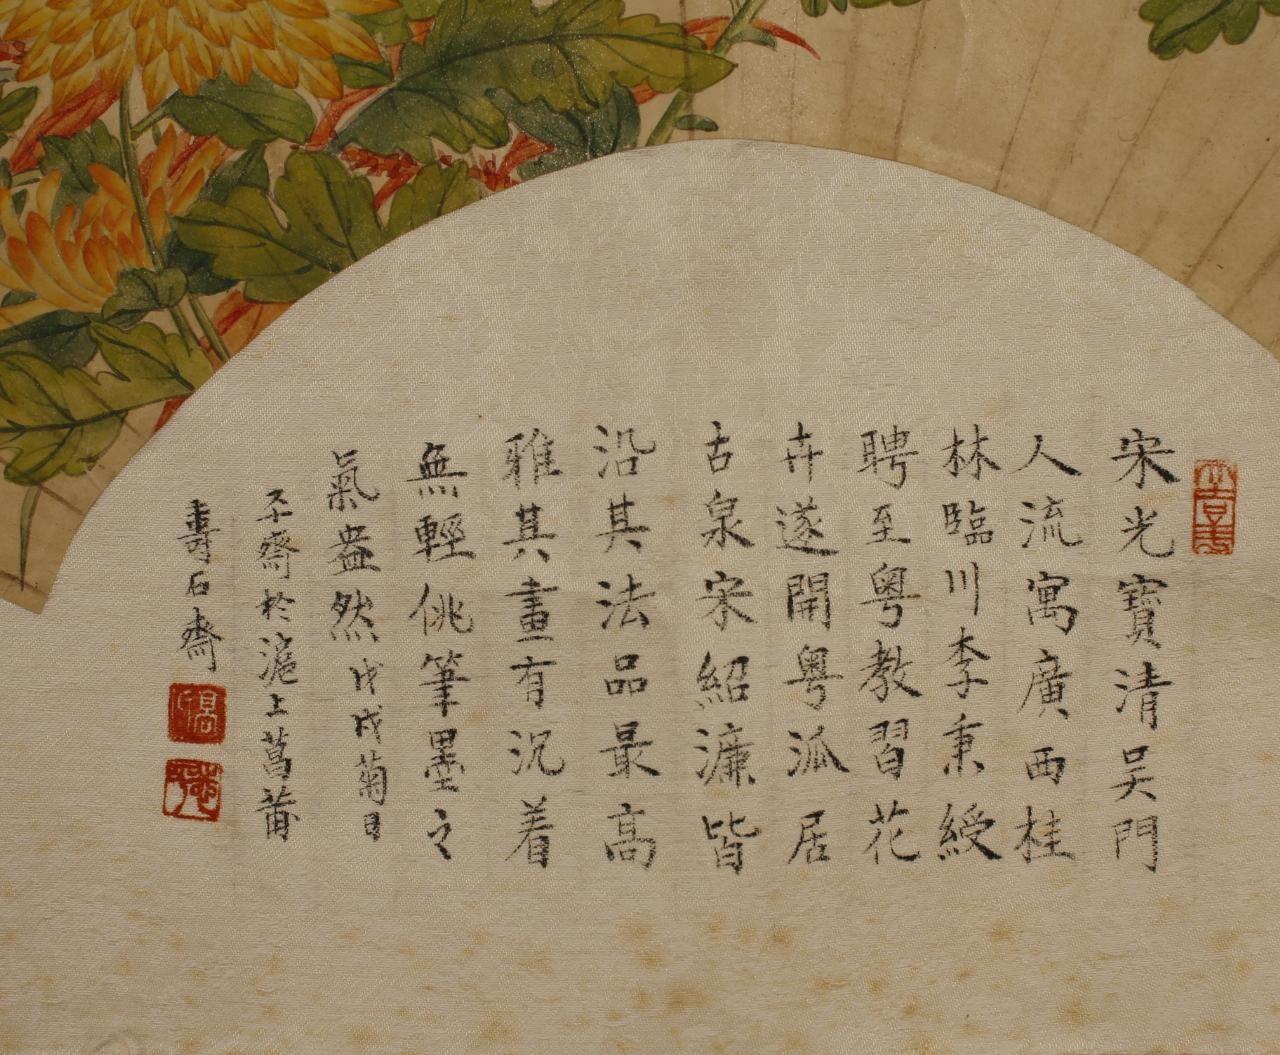 宋光寶清吴門
人流寓廣西桂
林臨川李秉綬
聘至粵教習花
卉遂開粵派居
古泉宋紹濂皆
沿其法品最高
雅其畫有沉着
無輕佻筆墨之
氣盎然戊戌菊月
齋於滬上菖莆
壽石齋